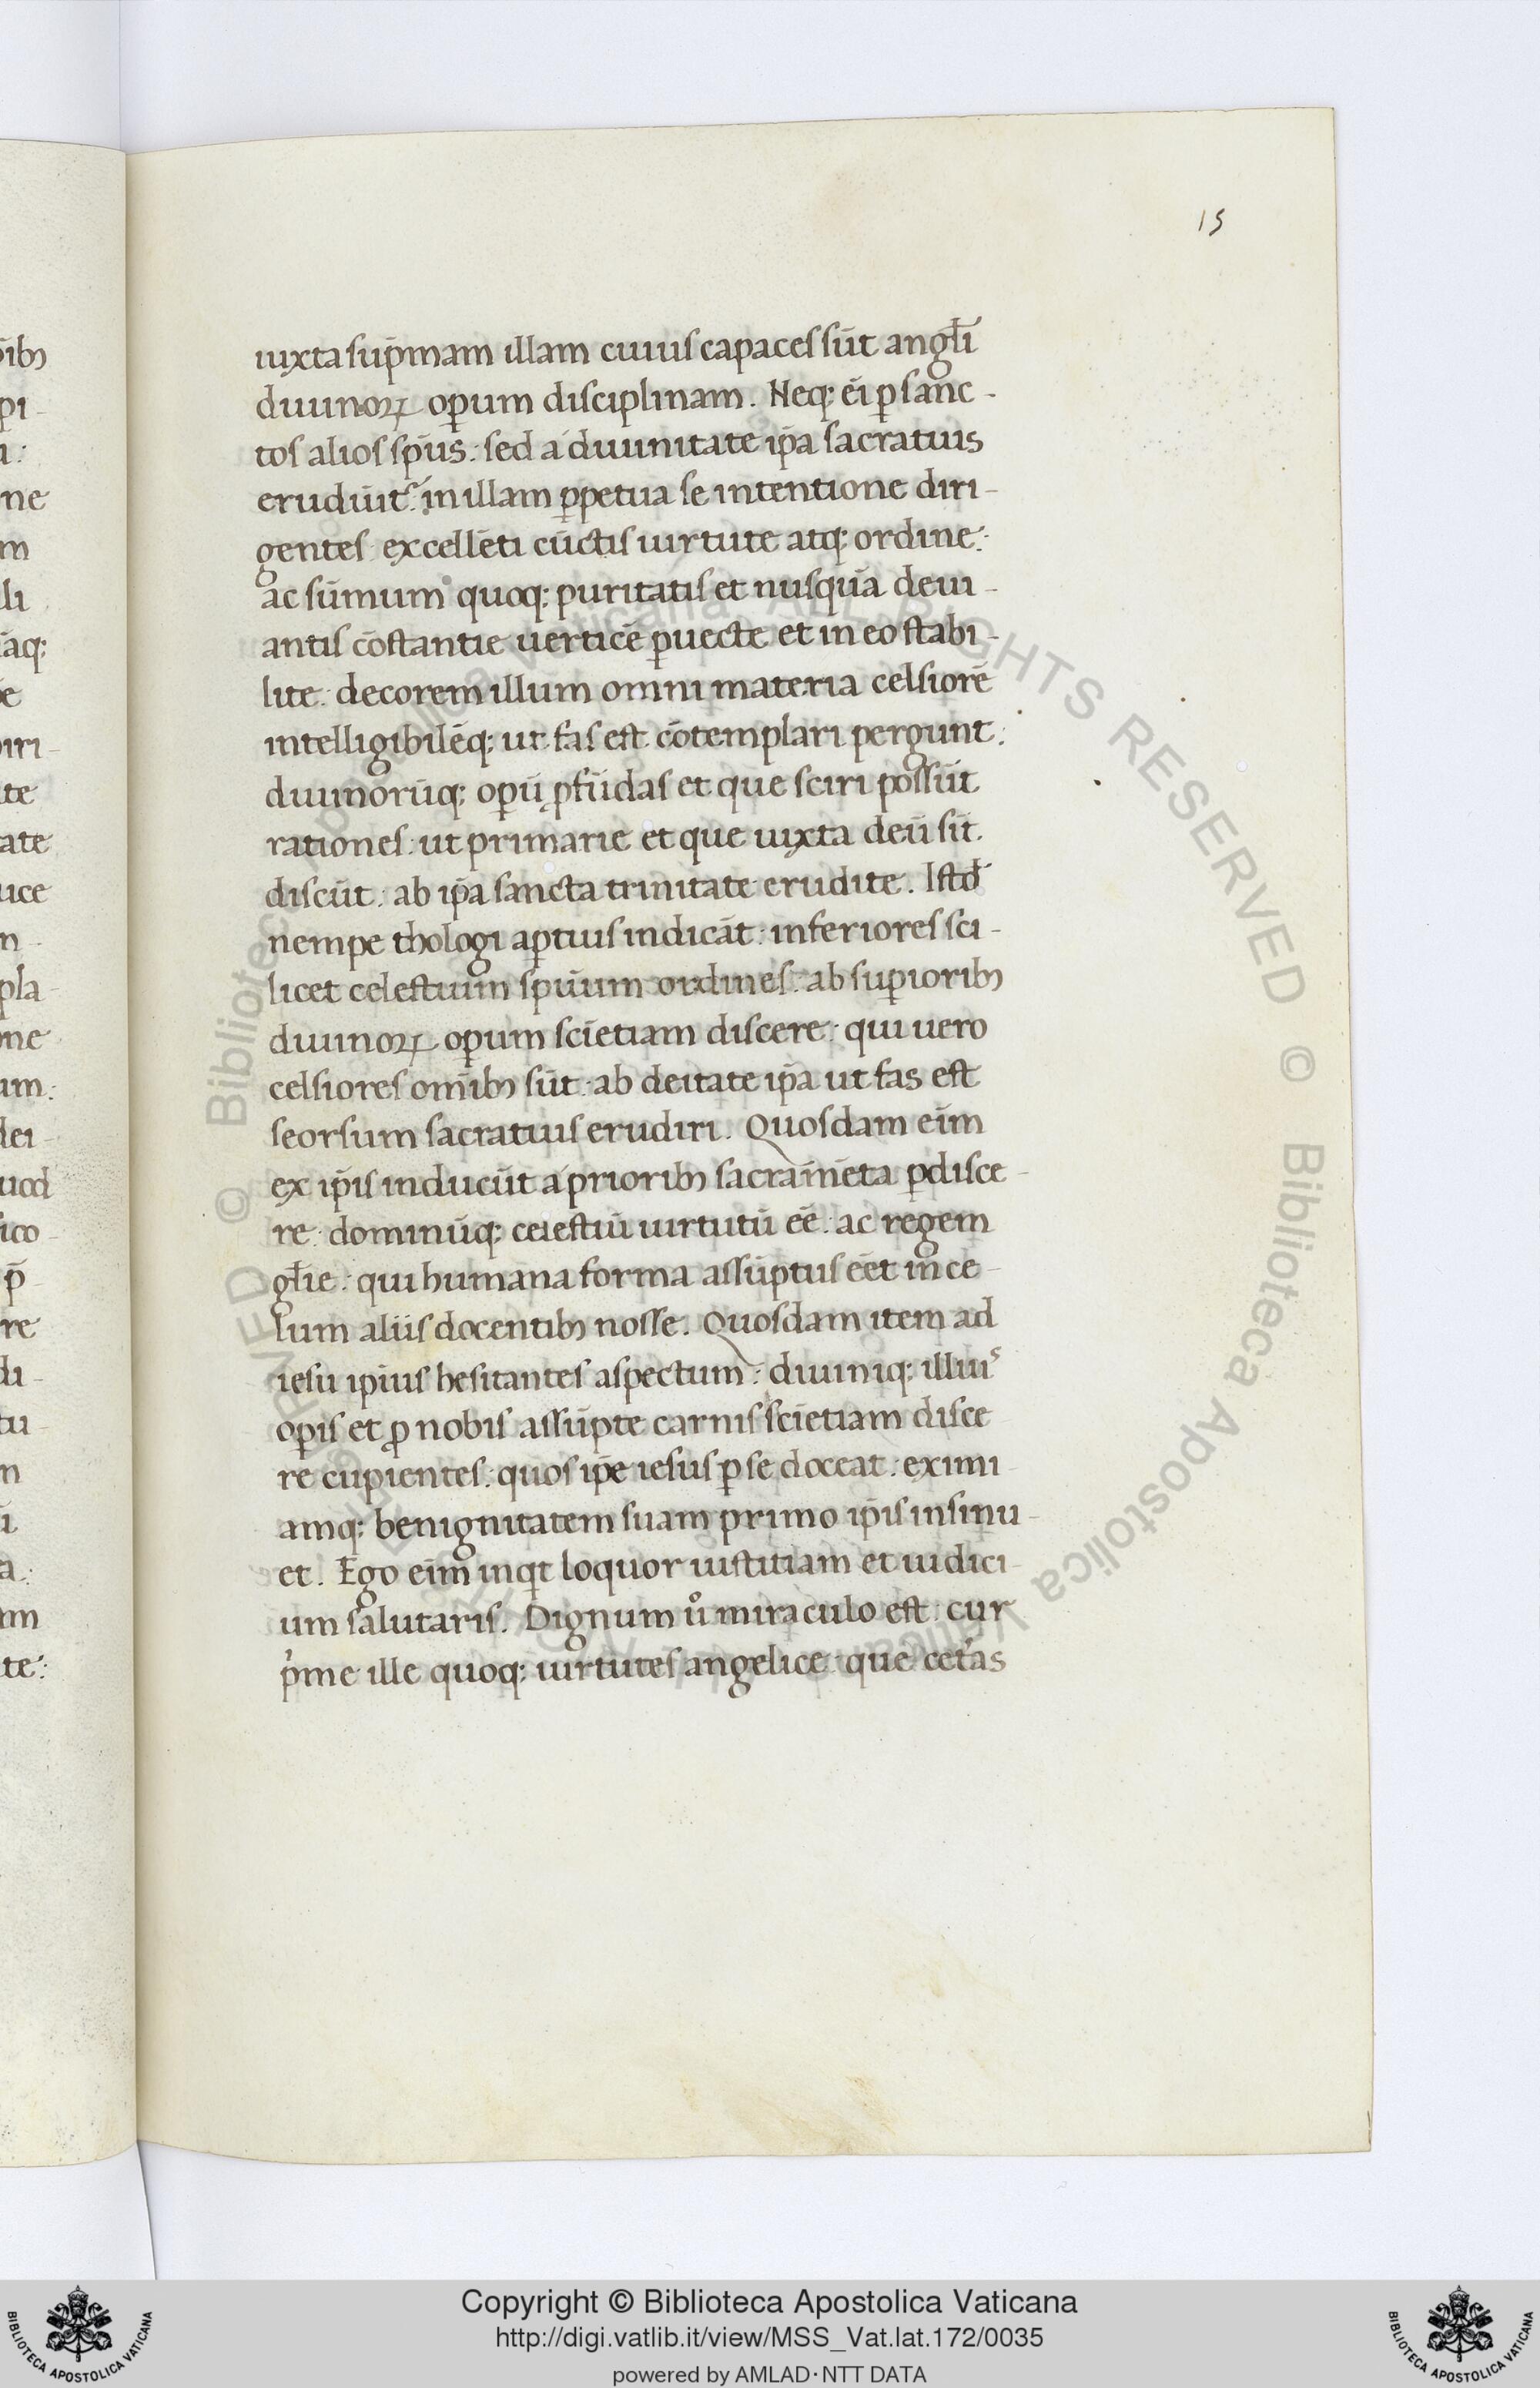 15
iuxta sup̄mam illam cuius capaces sūt angl̄i
diuinoꝝ oꝑum disciplinam. Neq; ēi ꝑ sanc-
tos alios sp̄us: sed a diuinitate ip̄a sacratius
erudiūt᷑: in illam ꝑpetua se intentione diri-
gentes excellēti cūctis uirtute atq; ordine:
ac sūmum quoq; puritatis et nusquā deui-
antis cōstantie uerticē ꝓuecte et in eo stabi-
lite: decorem illum omni materia celsiorē
intelligibilēq; ut fas est cōtemplari pergunt:
diuinorūq; oꝑū ꝓfūdas et que sciri possūt
rationes: ut primarie et que iuxta deū sūt.
discūt: ab ip̄a sancta trinitate erudite. Istđ
nempe thologi aꝑtius indicāt: inferiores sci-
licet celestium spūum ordines: ab suꝑioribꝫ
diuinoꝝ oꝑum sciētiam discere: qui uero
celsiores om̄ibꝫ sūt: ab deitate ip̄a ut fas est
seorsum sacratius erudiri. Quosdam eīm
ex ip̄is inducūt a prioribꝫ sacramēta ꝑdisce-
re: dominūq; celestiū uirtutū eē: ac regem
gl̄ie: qui humana forma assūptus eēt in ce-
lum aliis docentibꝫ nosse. Quosdam item ad
iesu ipīus hesitantes aspectum: diuiniq; illiuˢ
oꝑis et ꝓ nobis assūpte carnis sciētiam disce
re cupientes: quos ip̄e iesus ꝑ se doceat: eximi-
amq; benignitatem suam primo ip̄is insinu-
et. Ego eīm inqt loquor iustitiam et iudici-
um salutaris. Dignum uͦ miraculo est: cur
p̍me ille quoq; uirtutes angelice: que cet᷑as
ībꝫ
pi-
ne
m
li
āq;
iri-
te
ate
uce
n-
pla-
ne
um:
dei-
uod
ico-
p̄
re
di-
tu-
m
te:
© Biblioteca Apostolica Vaticana ALL RIGHTS RESERVED
Copyright © Biblioteca Apostolica Vaticana
http://digi.vatlib.it/view/MSS_Vat.lat.172/0035
powered by AMLAD·NTT DATA
BIBLIOTECA APOSTOLICA VATICANA
BIBLIOTECA APOSTOLICA VATICANA